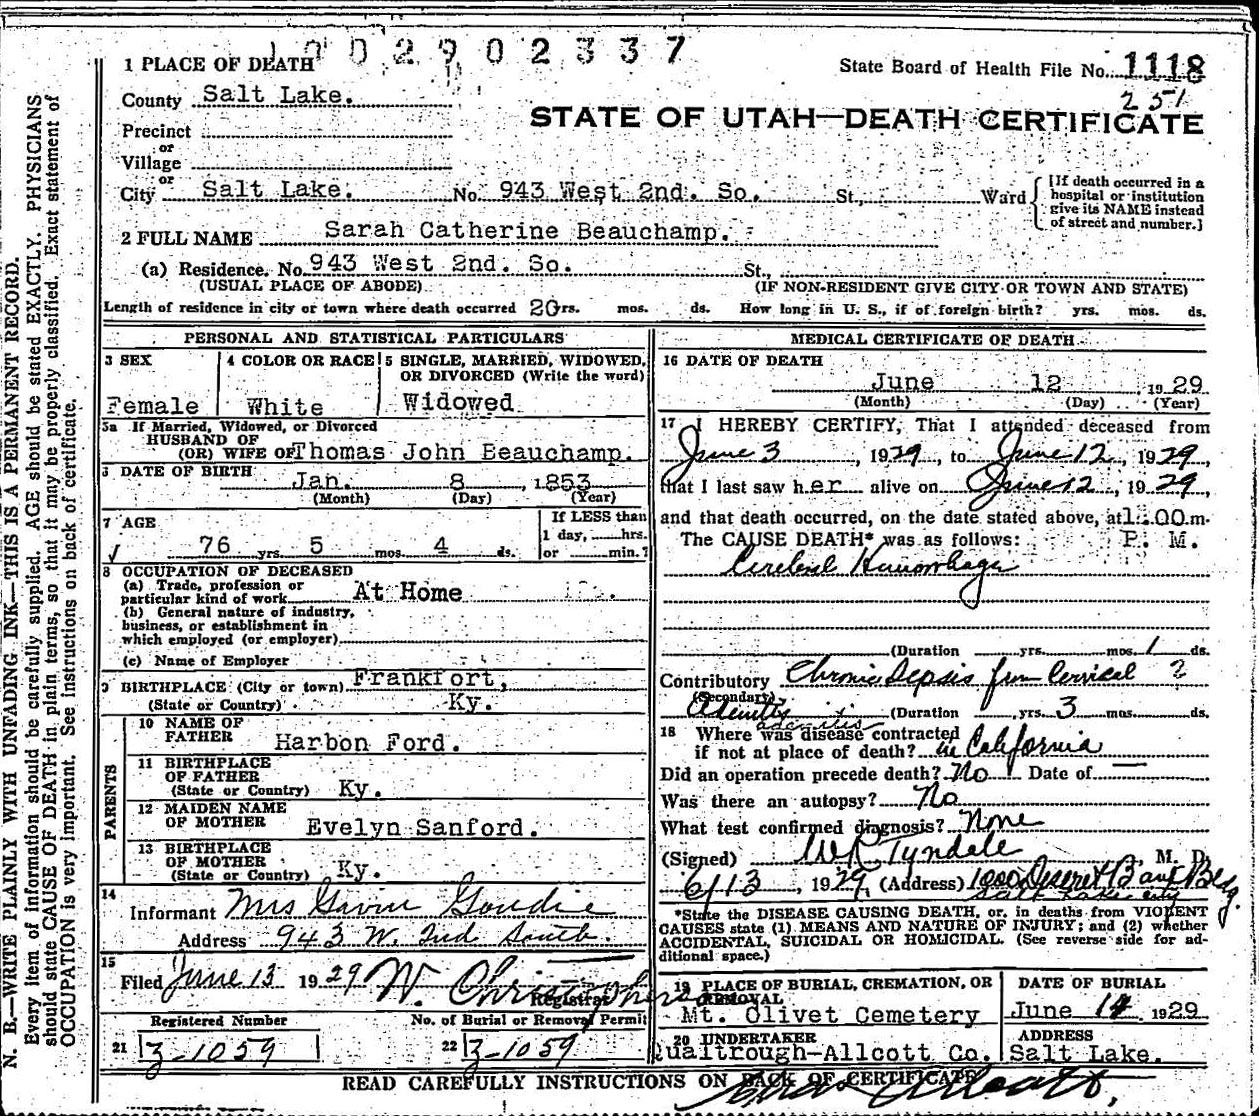 1002902337
1 PLACE OF DEATH
State Board of Health File No. 1118
251
County Salt Lake.
STATE OF UTAH—DEATH CERTIFICATE
Precinct
or
Village
or
City Salt Lake. No. 943 West 2nd. So. St., Ward
[If death occurred in a
hospital or institution
give its NAME instead
of street and number.]
2 FULL NAME Sarah Catherine Beauchamp.
(a) Residence. No. 943 West 2nd. So. St.,
(USUAL PLACE OF ABODE) (IF NON-RESIDENT GIVE CITY OR TOWN AND STATE)
Length of residence in city or town where death occurred 20 yrs. mos. ds. How long in U. S., if of foreign birth? yrs. mos. ds.
PERSONAL AND STATISTICAL PARTICULARS
3 SEX 4 COLOR OR RACE 5 SINGLE, MARRIED, WIDOWED,
OR DIVORCED (Write the word)
Female White Widowed
5a If Married, Widowed, or Divorced
HUSBAND OF
(OR) WIFE OF Thomas John Beauchamp.
6 DATE OF BIRTH
Jan. 8, 1853
(Month) (Day) (Year)
7 AGE
If LESS than
1 day, hrs.
or min.?
76 yrs. 5 mos. 4 ds.
8 OCCUPATION OF DECEASED
(a) Trade, profession or
particular kind of work At Home
(b) General nature of industry,
business, or establishment in
which employed (or employer)
(c) Name of Employer
9 BIRTHPLACE (City or town) Frankfort,
(State or Country) Ky.
PARENTS
10 NAME OF
FATHER Harbon Ford.
11 BIRTHPLACE
OF FATHER
(State or Country) Ky.
12 MAIDEN NAME
OF MOTHER Evelyn Sanford.
13 BIRTHPLACE
OF MOTHER
(State or Country) Ky.
14
Informant Mrs Gavin Goudie
Address 943 W. 2nd South.
15
Filed June 13 1929 W. Christopherson
Registrar
Registered Number No. of Burial or Removal Permit
21 Z-1059 22 Z-1059
MEDICAL CERTIFICATE OF DEATH
16 DATE OF DEATH
June 12 1929
(Month) (Day) (Year)
17 I HEREBY CERTIFY, That I attended deceased from
June 3, 1929, to June 12, 1929,
that I last saw her alive on June 12, 1929,
and that death occurred, on the date stated above, at 1:00 m.
The CAUSE DEATH* was as follows: P. M.
Cerebral Hemorrhage
(Duration yrs. mos. 1 ds.
Contributory Chronic Sepsis from Cervical ?
(Secondary)
Adenitis (Duration yrs. 3 mos. ds.
adenitis
18 Where was disease contracted
if not at place of death? in California
Did an operation precede death? No Date of —
Was there an autopsy? No
What test confirmed diagnosis? None
(Signed) W R Tyndale, M. D.
6/13, 1929, (Address) 1000 Deseret Bank Bldg.
Salt Lake City
*State the DISEASE CAUSING DEATH, or, in deaths from VIOLENT
CAUSES state (1) MEANS AND NATURE OF INJURY; and (2) whether
ACCIDENTAL, SUICIDAL OR HOMICIDAL. (See reverse side for ad-
ditional space.)
19 PLACE OF BURIAL, CREMATION, OR
REMOVAL
Mt. Olivet Cemetery
DATE OF BURIAL
June 14 1929
20 UNDERTAKER
Qualtrough-Allcott Co.
ADDRESS
Salt Lake.
READ CAREFULLY INSTRUCTIONS ON BACK OF CERTIFICATE
N. B.—WRITE PLAINLY WITH UNFADING INK—THIS IS A PERMANENT RECORD.
Every item of information should be carefully supplied. AGE should be stated EXACTLY. PHYSICIANS
should state CAUSE OF DEATH in plain terms, so that it may be properly classified. Exact statement of
OCCUPATION is very important. See Instructions on back of certificate.